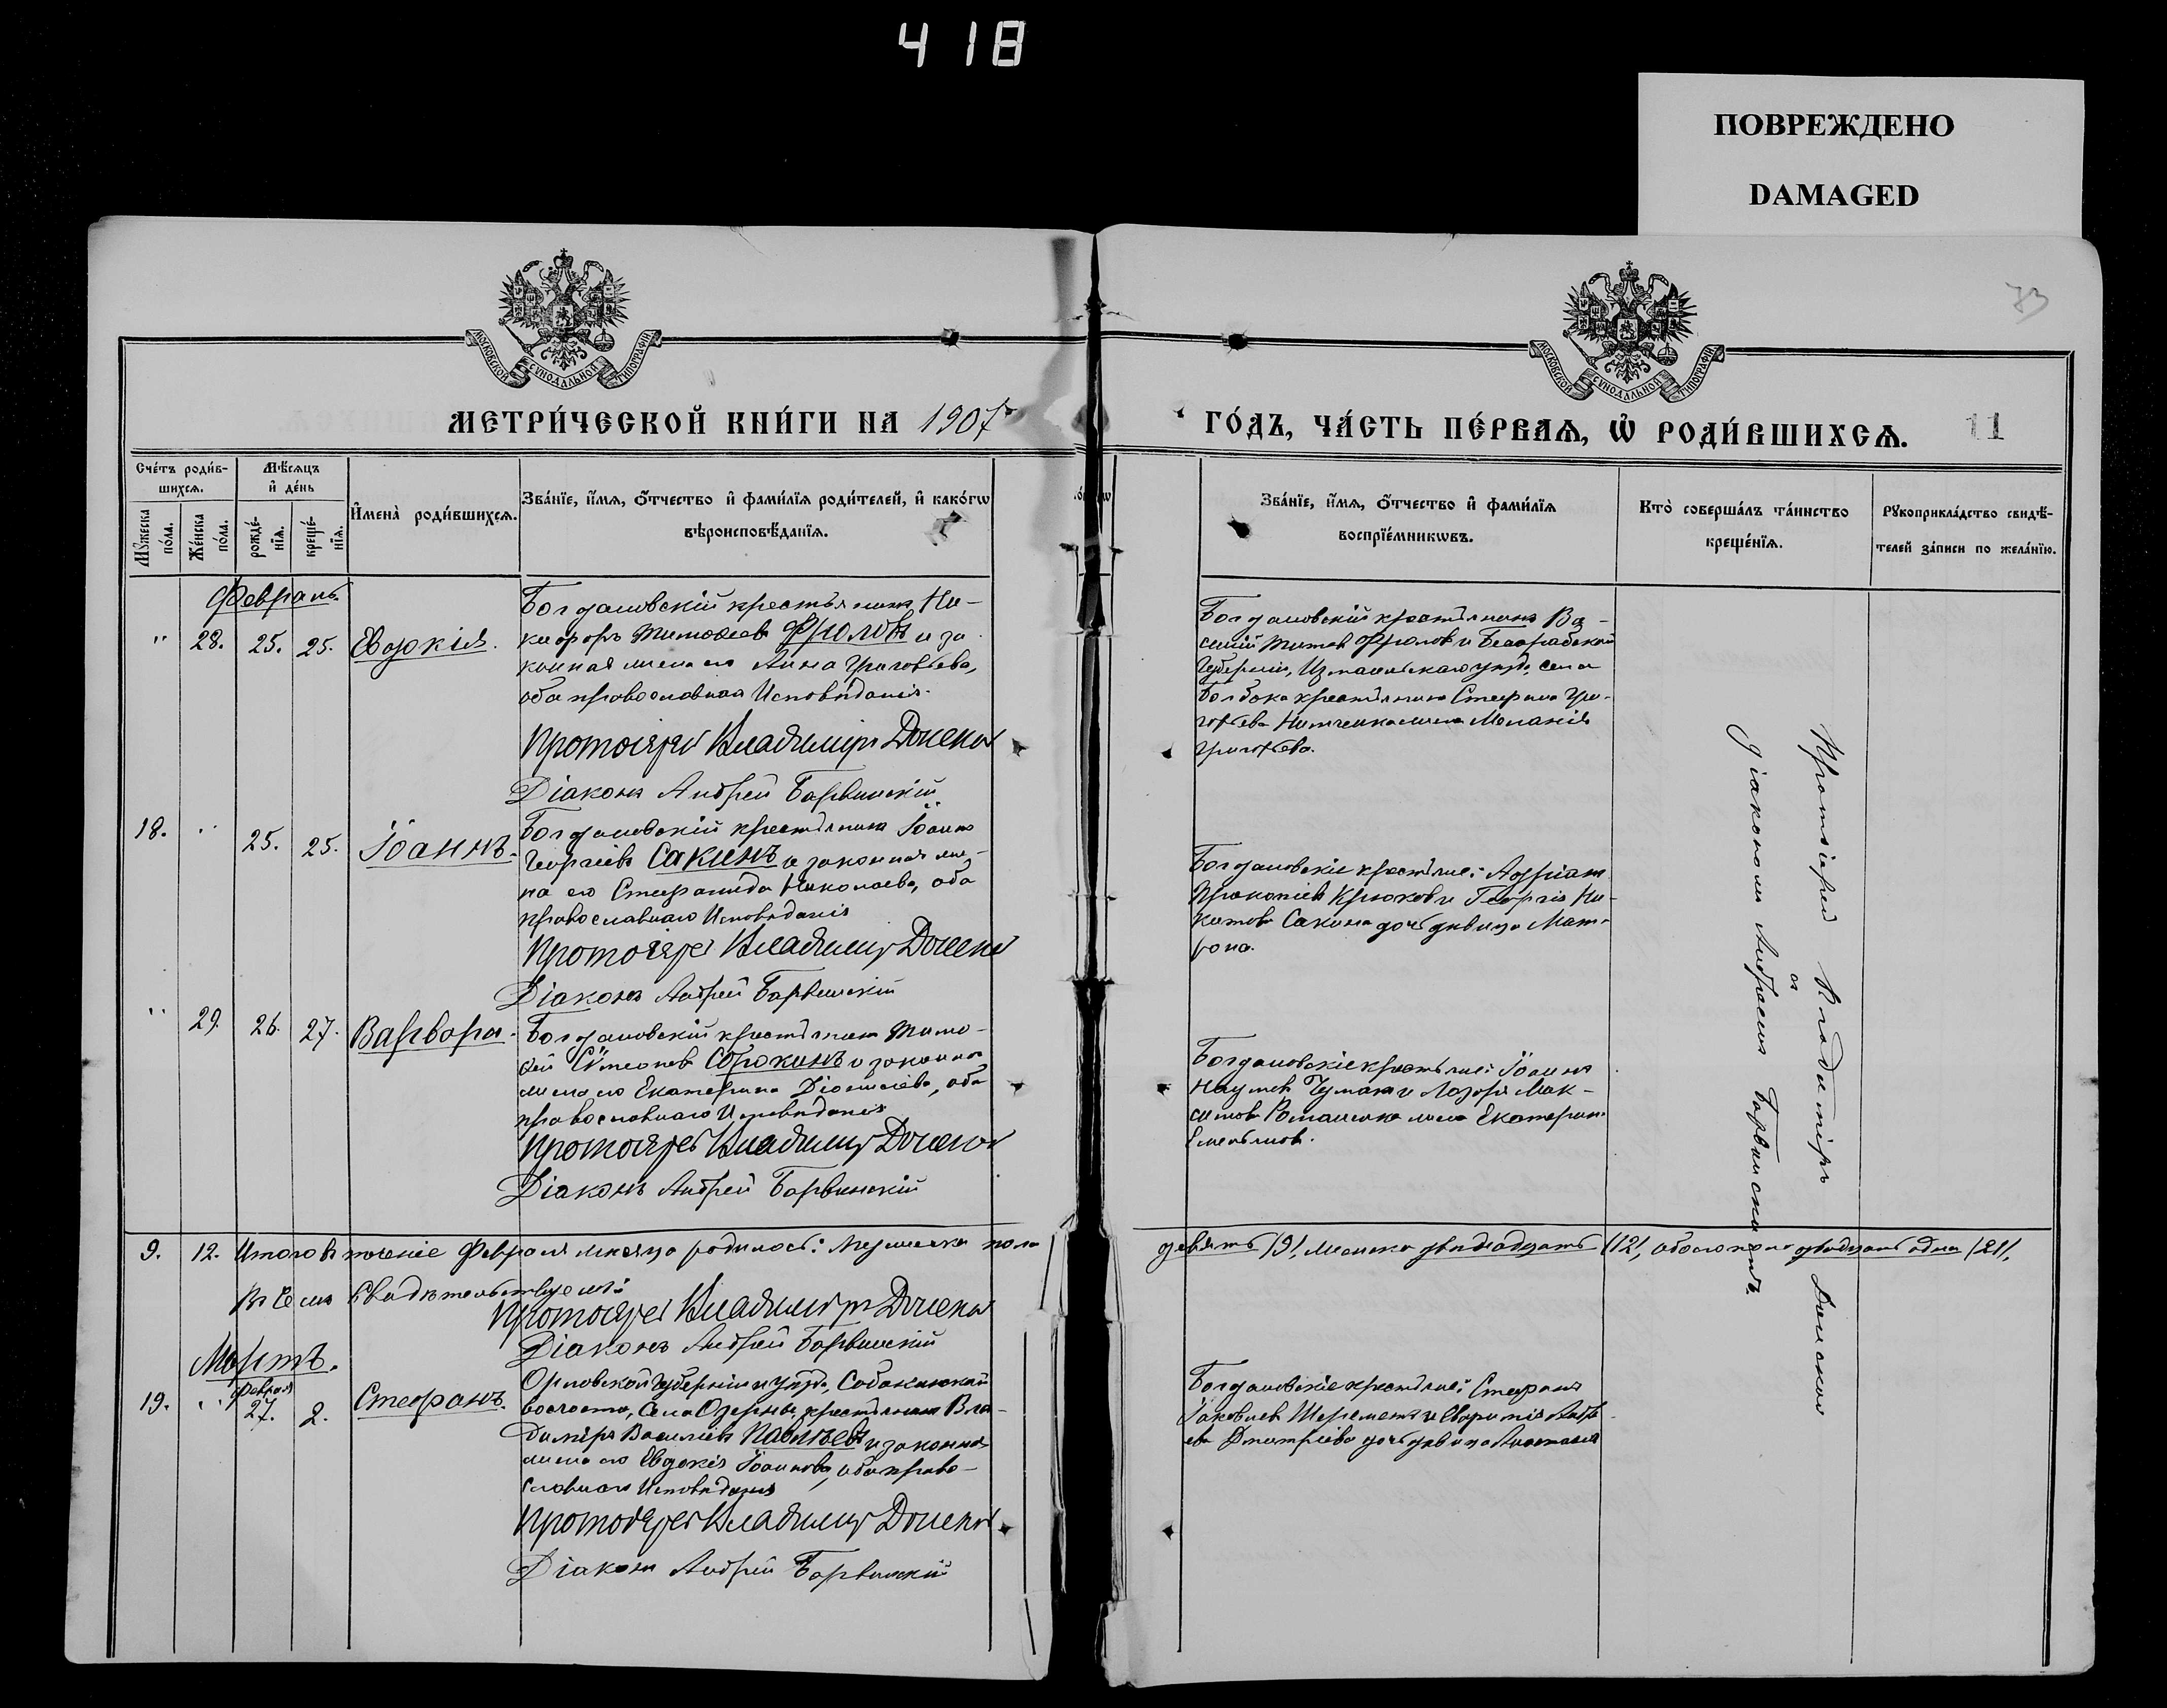 418
ПОВРЕЖДЕНО
DAMAGED
73
МОСКОВСКОЙ СѴНОДАЛЬНОЙ ТИПОГРАФІИ
МОСКОВСКОЙ СѴНОДАЛЬНОЙ ТИПОГРАФІИ
МЕТРИ́ЧЕСКОЙ КНИ́ГИ НА 1907
ГО́ДЪ, ЧА́СТЬ ПЕ́РВАѦ, Ѡ РОДИ́ВШИХСѦ.
11
Сче́тъ роди́в-
шихсѧ.
Мꙋжеска по́ла.
Же́нска по́ла.
Мѣ́сѧцъ
и҆ де́нь
рожде́-
нїѧ.
креще́-
нїѧ.
И҆мена̀ роди́вшихсѧ.
Зва́нїе, и҆́мѧ, ѻ҆́тчество и҆ фами́лїѧ роди́телей, и҆ како́гѡ
вѣроисповѣ́данїѧ.
Зва́нїе, и҆́мѧ, ѻ҆́тчество и҆ фами́лїѧ
воспрїе́мникѡвъ.
Кто̀ соверша́лъ та́инство
креще́нїѧ.
Рꙋкоприкла́дство свидѣ́-
телей за́писи по жела́нїю.
Февраль.
" 28. 25. 25. Евдокія.
Богдановскій крестьянинъ Ни-
кифоръ Тимофеевъ Фроловъ и за
конная жена его Анна Григорьева,
оба православнаго Исповѣданія.
Протоіерей Владиміръ Доненко
Діаконъ Андрей Барвинскій
Богдановскій крестьянинъ Ва-
силій Титовъ Фроловъ и Бессарабской
Губерніи, Измаильскаго уѣзда, села
Болбока крестьянина Стефана Гри-
горьева жена Меланія
Григорьева.
18. " 25. 25. Іоаннъ.
Богдановскій крестьянинъ Іоаннъ
Георгіевъ Сакинъ и законная же-
на его Стефанида Николаева, оба
православнаго Исповѣданія
Протоіерей Владиміръ Доненко
Діаконъ Андрей Барвинскій
Богдановскіе крестьяне:
Прокопіевъ Крюковъ и Георгія Ни-
китова Сакина дочь дѣвица Мат-
рона.
" 29. 26. 27. Варвара.
Богдановскій крестьянинъ Тимо-
фей Сѵмеоновъ Сорокинъ и законная
жена его Екатерина оба
православнаго Исповѣданія
Протоіерей Владиміръ Доненко
Діаконъ Андрей Барвинскій
Богдановскіе крестьяне: Іоаннъ
Наумовъ Чумакъ и Лазаря Мак-
симова Романенко жена Екатерина
Емельянова.
Протоіерей Владиміръ Доненко
и
діакономъ Андреемъ Барвинскимъ.
9. 12. Итого въ теченіе Февраля мѣсяца родилось: Мужеска пола
девять /9/, женска двѣнадцать /12/, обоего пола двадцать одна /21/.
Въ чемъ Свидѣтельствуемъ:
Протоіерей Владиміръ Доненко
Діаконъ Андрей Барвинскій
Мартъ.
Февраля
19. " 27. 2. Стефанъ.
Орловской Губерніи и уѣзда,
волости, Села крестьянинъ Вла-
диміръ Василіевъ и законная
жена его Евдокія Іоаннова, оба право-
славнаго Исповѣданія
Протоіерей Владиміръ Доненко
Діаконъ Андрей Барвинскій
Богдановскіе крестьяне: Стефанъ
Іаковлевъ Шереметъ и
Дмитріева дочь дѣвица Анастасія